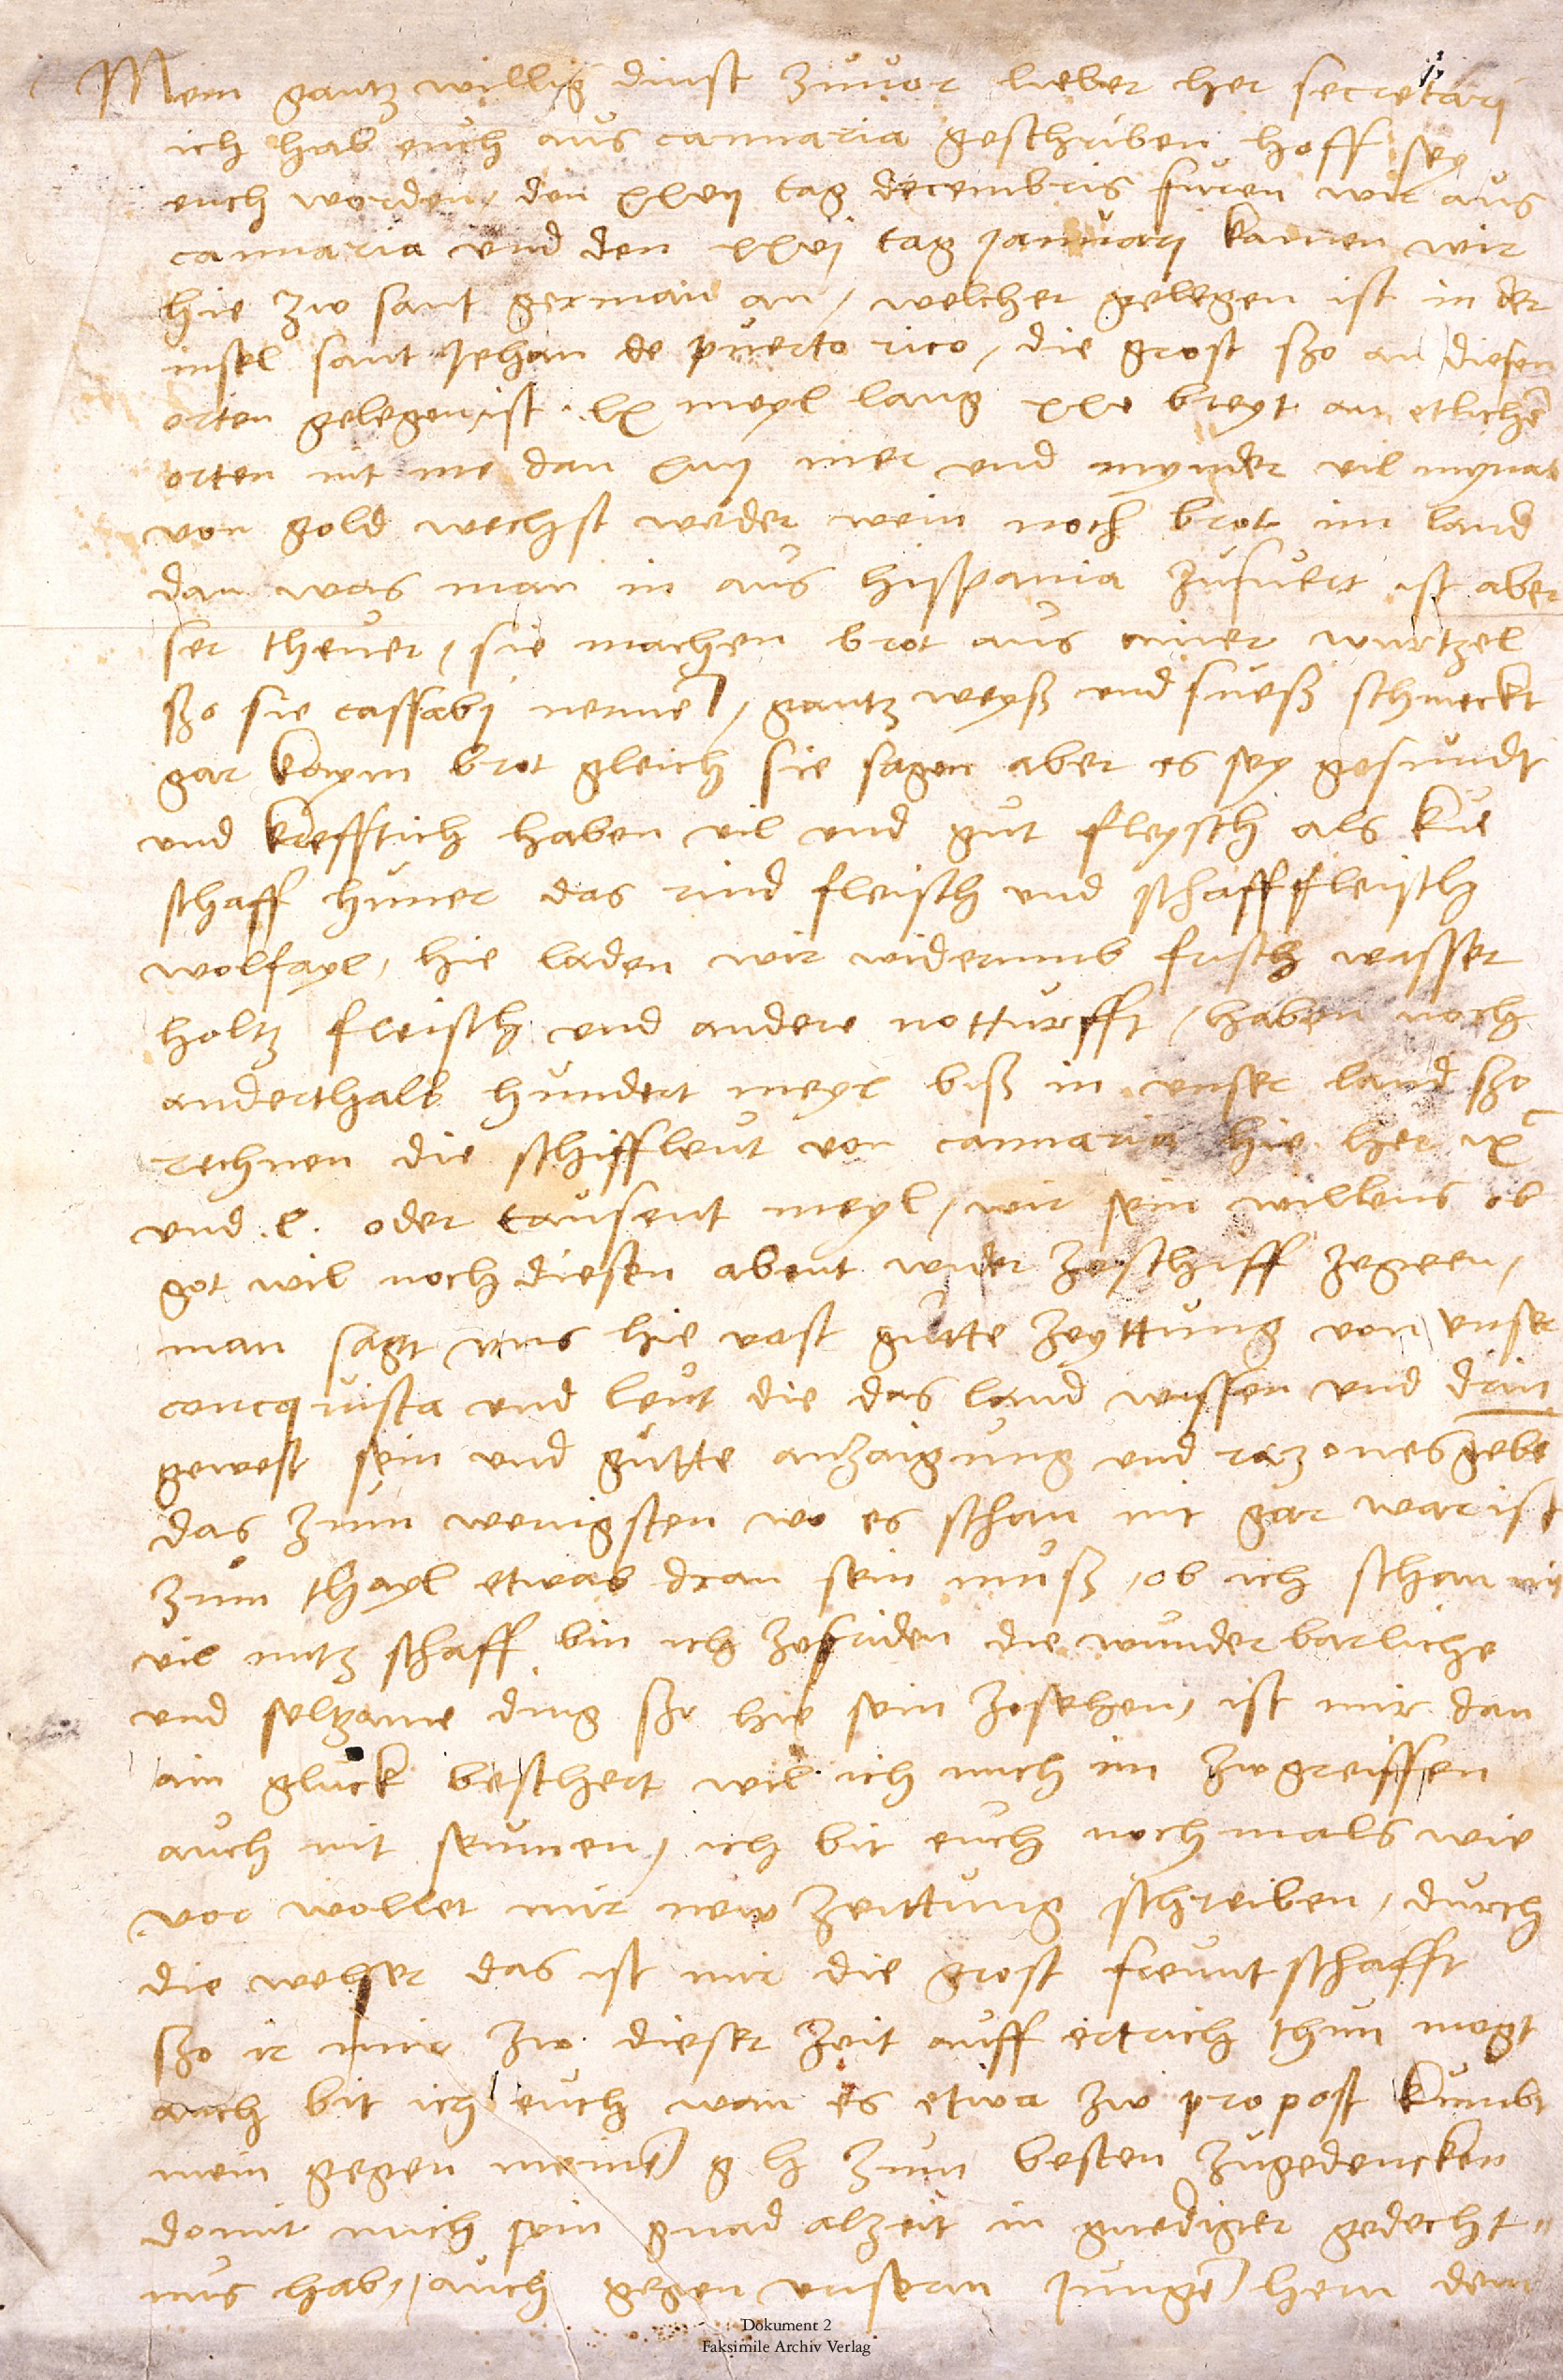 Mein gantz willig dinst zuvor lieber her secretarj
ich hab euch aus cannaria geschriben hoff sey
euch worden, den xxvij tag decembris furen wir aus
cannaria und den xxvj tag Januarj kamen wir
hie zw sant german an / welcher gelegen ist in der
insel sant Jehan de puerto rico / die grost sso an diesen
orten gelegen ist . lx meyl lang xxv breyt an etlichē
orten nit me dan xviij mer und mynder vil mynas
von gold wechst weder wein noch brot im land
dan was man in aus hispania zufuert ist aber
ser theuer / sie machen brot aus einer wurtzel
sso sie cassabj nennē / gantz weyß und sueß schmeckt
gar kaym brot gleich sie sagen aber es sey gesundt
und krefftich haben vil und gut fleysch als kue
schaff huner das rind fleisch und schafffleisch
wolfayl / hie laden wir widerumb frisch wasser
holtz fleisch und andere notturfft / haben noch
anderthalb hundert meyl biß in unser land sso
rechnen die schiffleut von cannaria hie her ixc
und .l. oder tausent meyl / wir sein willens ob
got wil noch diesen abent wider zeschiff zegeen /
man sagt uns hie vast gutte zeyttung von unser
concquista und leut die das land wissen und drin
gewest sein und gutte anzaigung und razones gebē
das zum wenigsten wo es schan nit gar war ist
zum thayl etwas dran sein muß / ob ich schan nit
vil nutz schaff bin ich zefriden die wunderbarliche
und seltzame ding sso hie sein zesehen / ist mir dan
ain gluck beschert wil ich mich im zwgreiffen
auch nit seumen / ich bit euch nochmals wie
vor wollet mir new zeittung schreiben / durch
die welser das ist mir die grost freuntschafft
sso ir mir zw dieser zeit auff ertrich thun mogt
auch bit ich euch wan es etwa zw propost kumbt
mein gegen meinē g h zum besten zugedencken
domit mich sein gnad alzeit in gnediger gedecht=
nus hab / auch gegen unserm jungē hern dem
Dokument 2
Faksimile Archiv Verlag